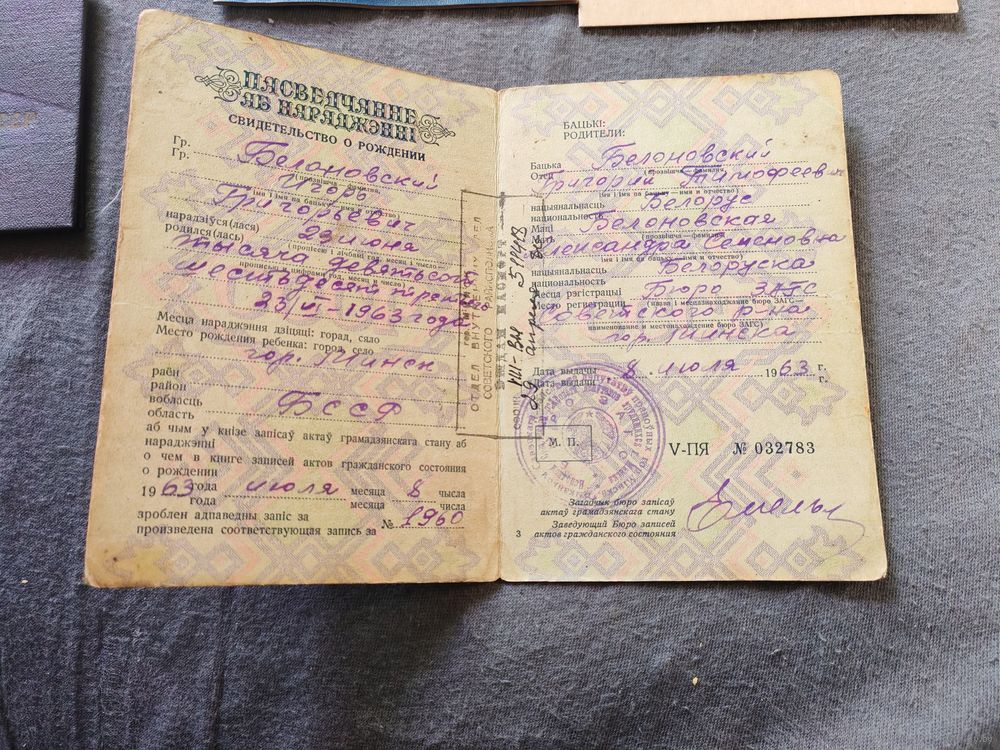 ПАСВЕДЧАННЕ
АБ НАРАДЖЭННІ
СВИДЕТЕЛЬСТВО О РОЖДЕНИИ
Гр.
Гр.
Белоновский
(прозвішча—фамилия,
Игорь
Григорьевич
імя і імя па бацьку—имя и отчество)
нарадзіўся(лася)
родился(лась) 23 июня
(пропісью і лічбамі год, месяц і чысло—
тысяча девятьсот
прописью и цифрами год, месяц и число)
шестьдесят третьего
23/VI-1963 года
Месца нараджэння дзіцяці: горад, сяло
Место рождения ребенка: город, село
гор. Минск
раён
район
вобласць
область БССР
аб чым у кнізе запісаў актаў грамадзянскага стану аб
нараджэнні
о чем в книге записей актов гражданского состояния
о рождении
1963 года июля месяца 8 чысла
года месяца числа
зроблен адпаведны запіс за
произведена соответствующая запись за № 1960
ОТДЕЛ ВНУТРЕННИХ ДЕЛ
СОВЕТСКОГО РАЙИСПОЛКОМА
ВЫДАН ПАСПОРТ
VIII-ВМ
29 апреля
БАЦЬКІ:
РОДИТЕЛИ:
Бацька
Отец
Белоновский
(прозвішча—фамилия,
Григорий Тимофеевич
імя і імя па бацьку—имя и отчество)
нацыянальнасць
национальность Белорус
Маці
Мать
Белоновская
(прозвішча—фамилия,
Александра Семеновна
імя і імя па бацьку—имя и отчество)
нацыянальнасць
национальность Белоруска
Месца рэгістрацыі
Место регистрации Бюро ЗАГС
(назва і месцазнаходжанне бюро ЗАГС—
Советского р-на
наименование и местонахождение бюро ЗАГС)
гор. Минска
Дата выдачы
Дата выдачи 8 июля 1963 г.
г.
М. П.
V-ПЯ № 032783
Загадчык бюро запісаў
актаў грамадзянскага стану
Заведующий Бюро записей
актов гражданского состояния
3